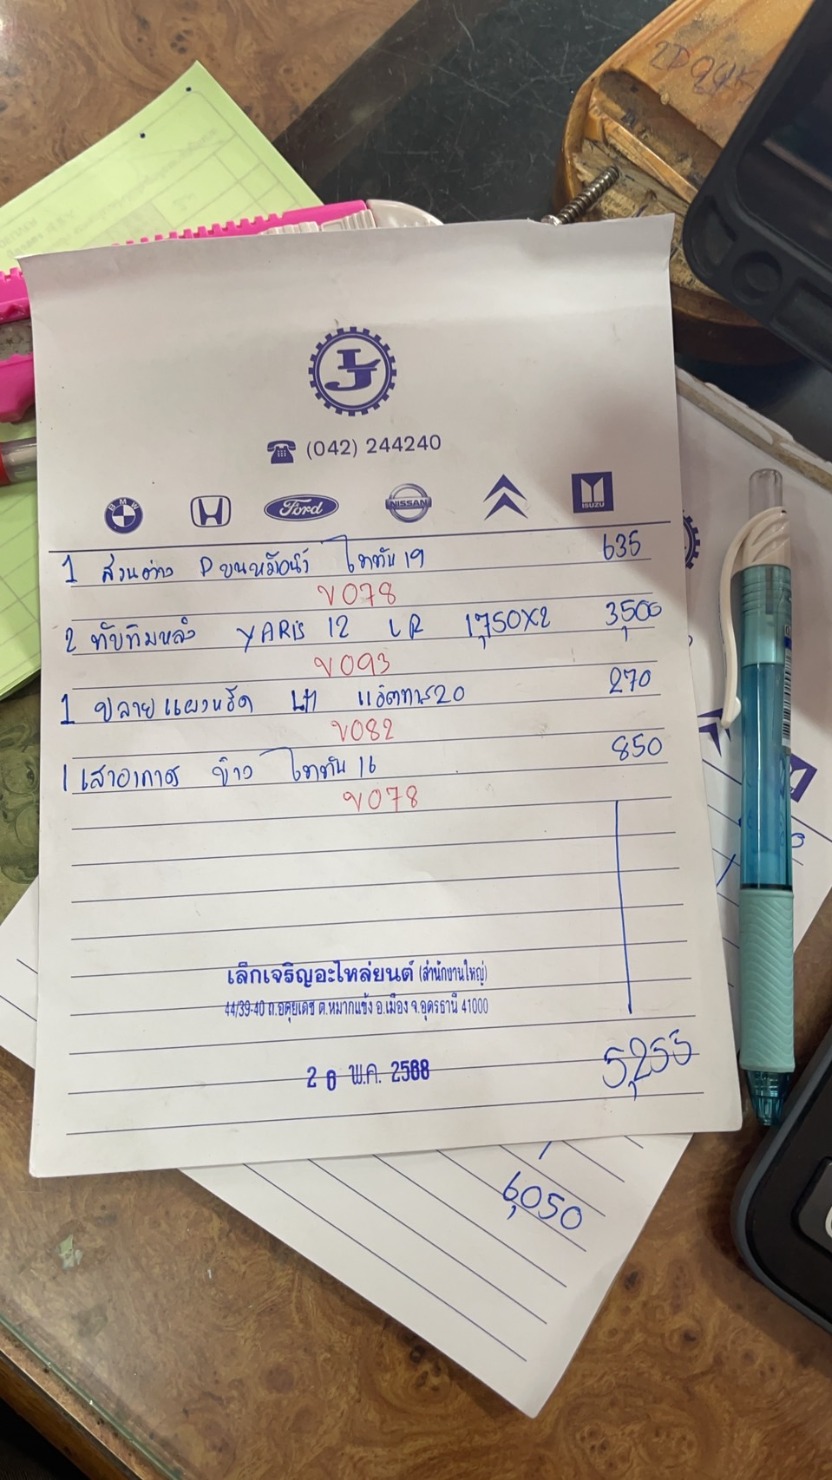 LJ
(042) 244240
BMW
Ford
NISSAN
ISUZU
1 D บนหรือนิว ไททัน 19 635
V078
2 ทับทิมหลัง YARIS 12 LR 1,750X2 3,500
V093
1 ปลายแผงหรีด LH แอดทาร20 270
V082
1 เสาอากาศ ข้าว ไททัน 16 850
V078
เล็กเจริญอะไหล่ยนต์ (สำนักงานใหญ่)
44/39-40 ถ.อดุยเดช ต.หมากแข้ง อ.เมือง จ.อุดรธานี 41000
2 6 พ.ค. 2568
5,255
6,050